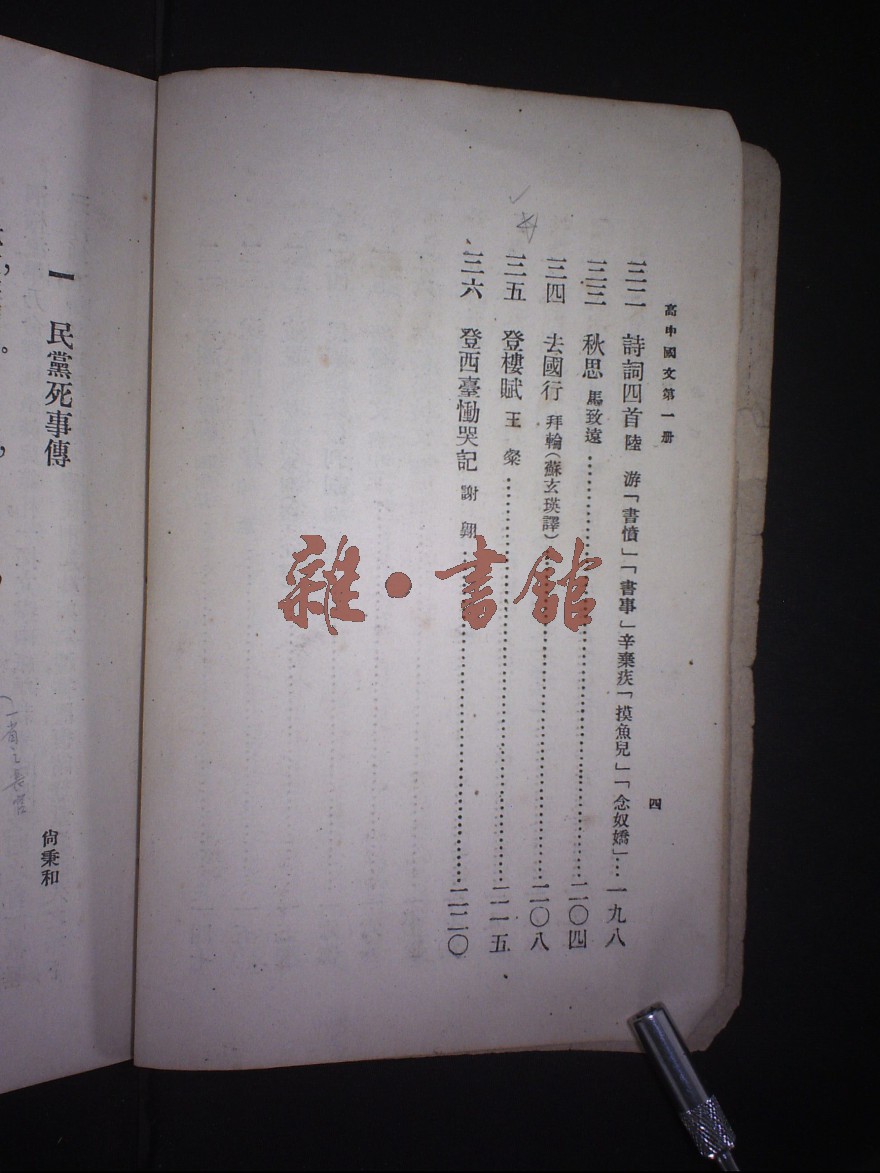 高中國文第一册
四
三二 詩詞四首 陸游「書憤」「書事」辛棄疾「摸魚兒」「念奴嬌」…一九八
三三 秋思 馬致遠……二〇四
三四 去國行 拜輪(蘇玄瑛譯)……二〇八
三五 登樓賦 王粲……二一五
三六 登西臺慟哭記 謝翱……二二〇
雜·書館
一 民黨死事傳
尙秉和